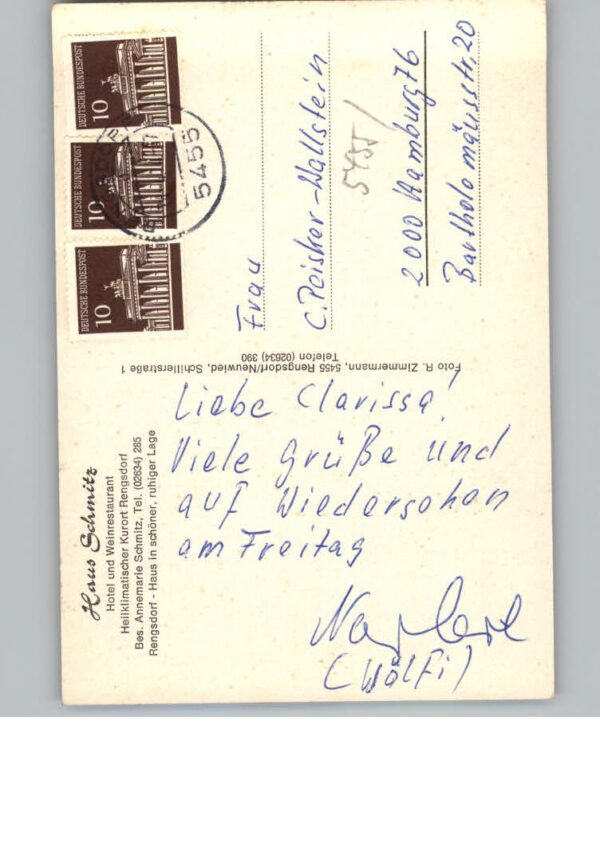 Haus Schmitz
Hotel und Weinrestaurant
Heilklimatischer Kurort Rengsdorf
Bes. Annemarie Schmitz, Tel. (02634) 285
Rengsdorf - Haus in schöner, ruhiger Lage
Liebe Clarissa!
Viele Grüße und
auf Wiedersehen
am Freitag
(Wölfi)
Foto R. Zimmermann, 5455 Rengsdorf/Neuwied, Schillerstraße 1
Telefon (02634) 390
DEUTSCHE BUNDESPOST
10
DEUTSCHE BUNDESPOST
10
DEUTSCHE BUNDESPOST
10
5455
Frau
C. Peisker-Wallstein
5455/
2000 Hamburg 76
Bartholomäusstr. 20